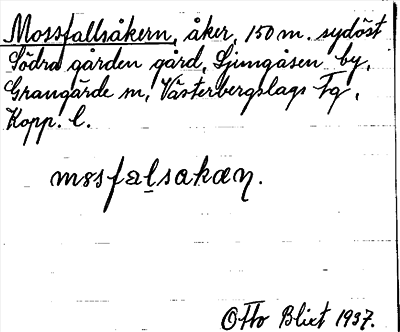 Mossfallsåkern, åker, 150 m. sydöst
Södra gården gård, Ljungåsen by,
Grangärde sn, Västerbergslags Fg,
Kopp. l.
mɷsfalsakæɳ.
Otto Blixt 1937.